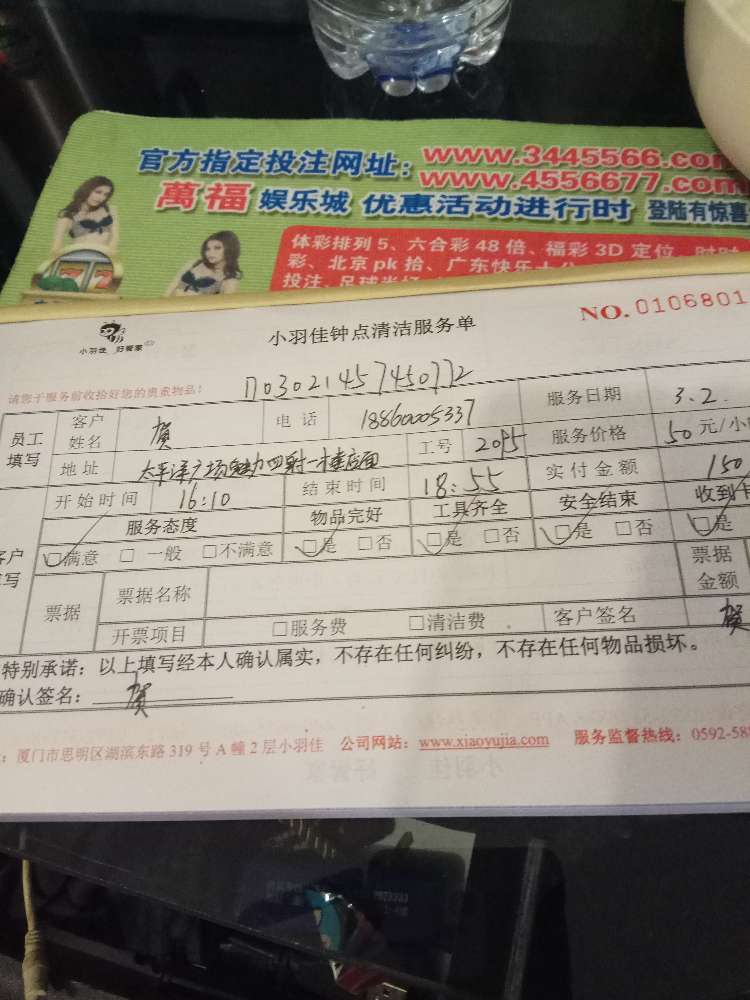 官方指定投注网址：www.3445566.com
www.4556677.com
萬福 娱乐城 优惠活动进行时 登陆有惊喜
体彩排列5、六合彩48倍、福彩3D定位、时时
彩、北京pk拾、广东快乐十分
投注、足球
小羽佳 好管家
小羽佳钟点清洁服务单
NO.0106801
请您于服务前收拾好您的贵重物品！
1703021457450772
员工填写 客户姓名 贺 电话 18860005337 服务日期 3.2
地址 太平洋广场魅力四射一楼店面 工号 2095 服务价格 50元/小
开始时间 16:10 结束时间 18:55 实付金额 150
服务态度 物品完好 工具齐全 安全结束 收到卡
客户填写 ☑满意 □一般 □不满意 ☑是 □否 ☑是 □否 ☑是 □否 ☑是
票据 票据名称 票据金额
开票项目 □服务费 □清洁费 客户签名 贺
特别承诺：以上填写经本人确认属实，不存在任何纠纷，不存在任何物品损坏。
确认签名：贺
：厦门市思明区湖滨东路319号A幢2层小羽佳 公司网站：www.xiaoyujia.com 服务监督热线：0592-588